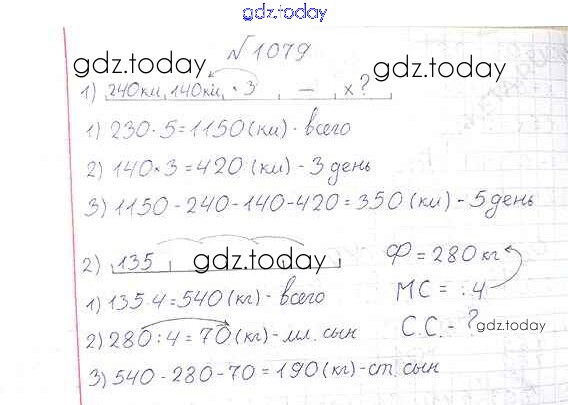 gdz.today
№1079
gdz.today
gdz.today
1) 240км, 140км, · 3 — x?
1) 230 · 5 = 1150 (км) - всего
2) 140 · 3 = 420 (км) - 3 день
3) 1150 - 240 - 140 - 420 = 350 (км) - 5 день
2) 135
gdz.today
Ф = 280 кг
1) 135 · 4 = 540 (кг) - всего
МС = : 4
2) 280 : 4 = 70 (кг) - мл. сын
С.С. - ?
gdz.today
3) 540 - 280 - 70 = 190 (кг) - ст. сын